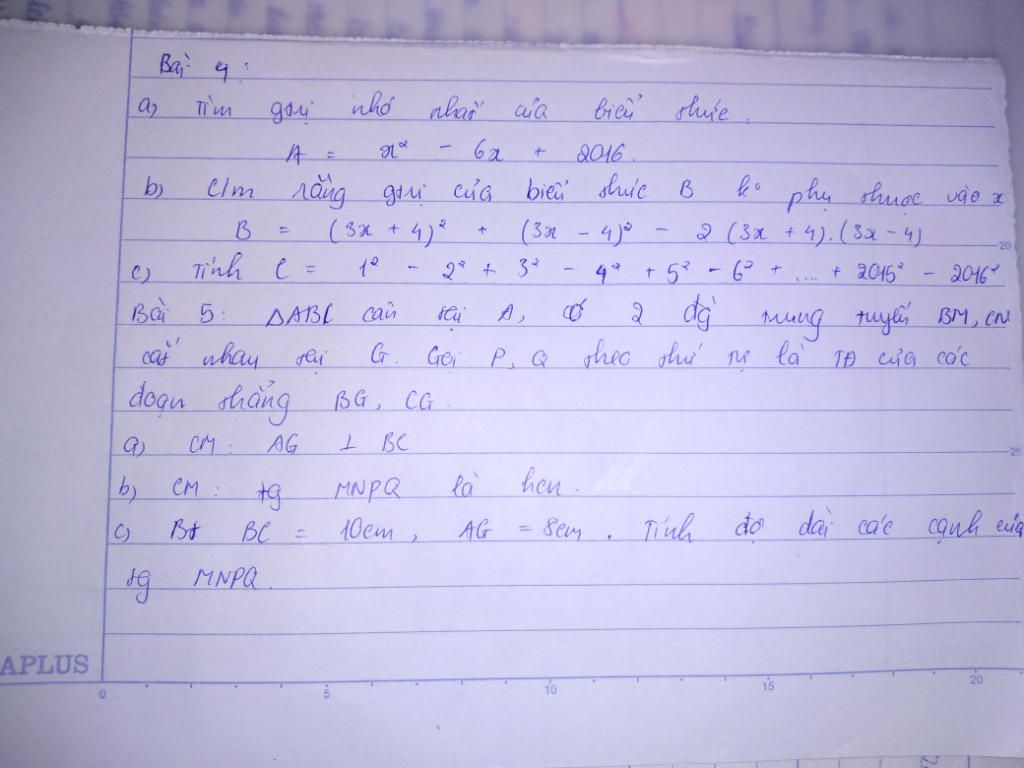 Bài 4 :
a) Tìm gtrị nhỏ nhất của biểu thức.
A = x² - 6x + 2016.
b) C/m rằng gtrị của biểu thức B ko phụ thuộc vào x
B = (3x + 4)² + (3x - 4)² - 2 (3x + 4).(3x - 4)
c) Tính C = 1² - 2² + 3² - 4² + 5² - 6² + .... + 2015² - 2016²
Bài 5 : ΔABC cân tại A, có 2 đg̀ trung tuyến BM, CN
cắt nhau tại G. Gọi P, Q theo thứ tự là TĐ của các
đoạn thẳng BG, CG.
a) CM : AG ⊥ BC
b) CM : tg MNPQ là hcn.
c) Bt BC = 10cm, AG = 8cm. Tính độ dài các cạnh của
tg MNPQ.
APLUS
0 5 10 15 20
20
25